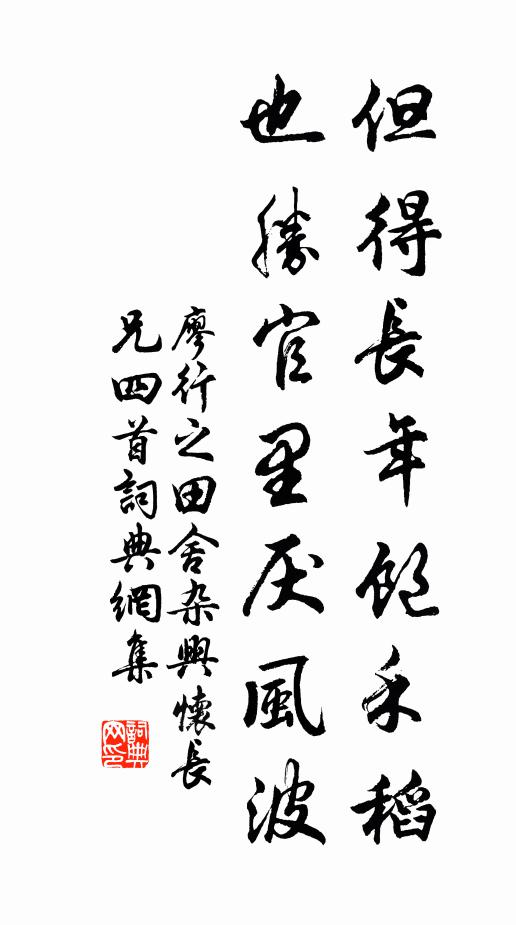 但得長年飽禾稻
也勝官里厌風波
廖行之田舍杂興懷長
兄四首詞典網集
詞典網印